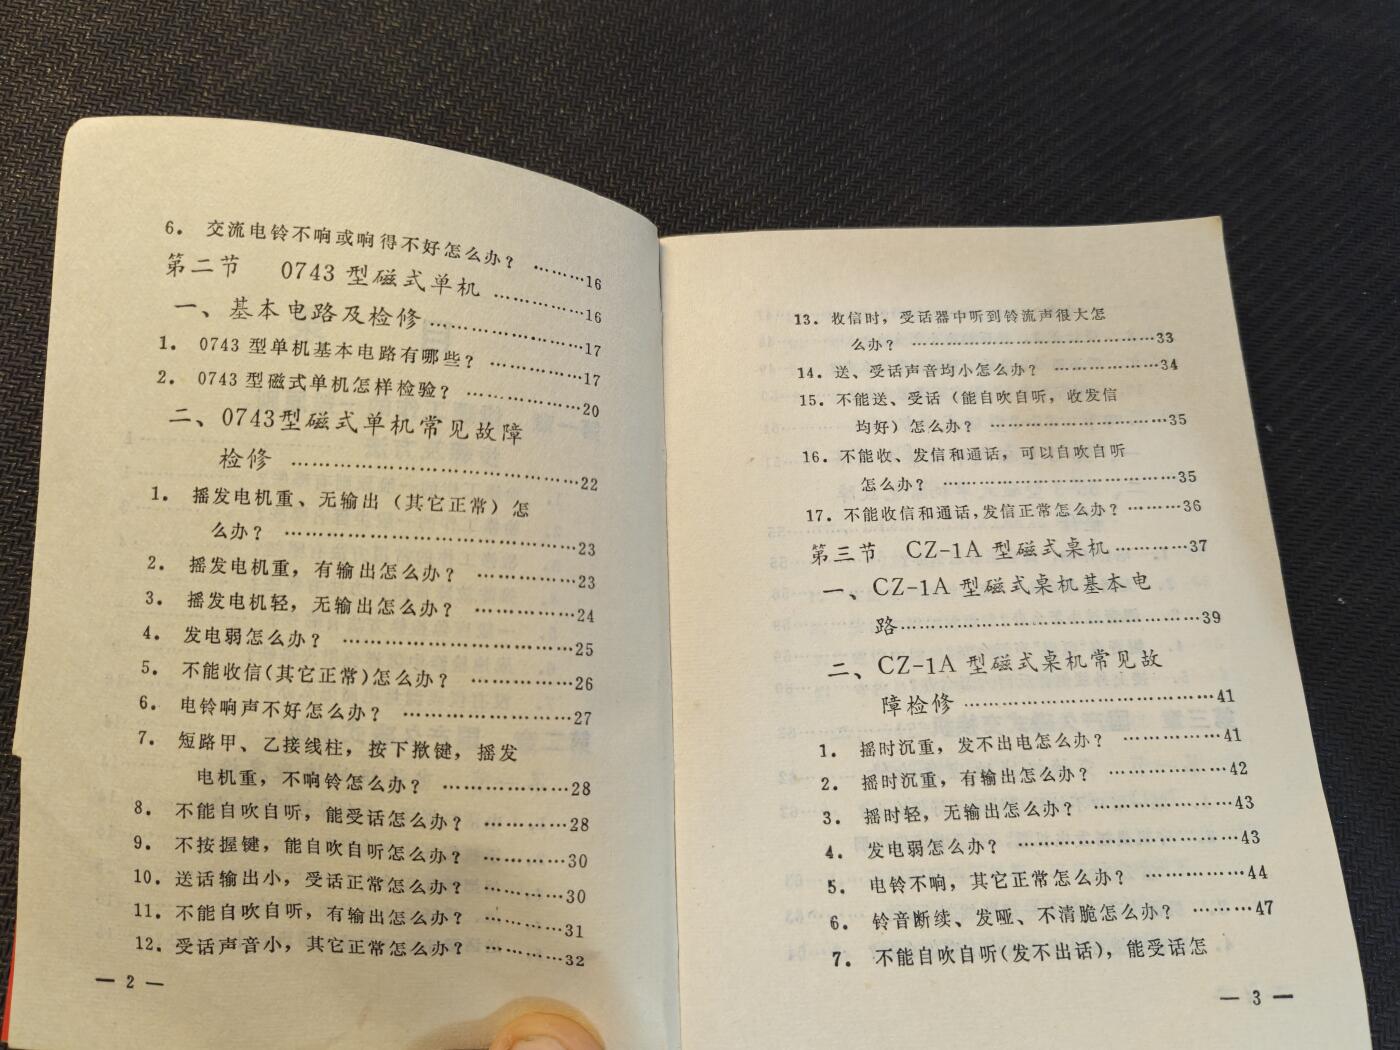 6. 交流电铃不响或响得不好怎么办？ ………16
第二节 0743 型磁式单机 …………16
一、基本电路及检修 ……………17
1. 0743 型单机基本电路有哪些？ …………17
2. 0743 型磁式单机怎样检验？ …………20
二、0743型磁式单机常见故障
检修 ……………………………22
1. 摇发电机重、无输出（其它正常）怎
么办？ ……………………………23
2. 摇发电机重，有输出怎么办？ …………23
3. 摇发电机轻，无输出怎么办？ …………24
4. 发电弱怎么办？ ………………………25
5. 不能收信(其它正常)怎么办？ …………26
6. 电铃响声不好怎么办？ ………………27
7. 短路甲、乙接线柱，按下揿键，摇发
电机重，不响铃怎么办？ ……………28
8. 不能自吹自听，能受话怎么办？ …………28
9. 不按握键，能自吹自听怎么办？ …………30
10. 送话输出小，受话正常怎么办？ …………30
11. 不能自吹自听，有输出怎么办？ …………31
12. 受话声音小，其它正常怎么办？ …………32
— 2 —
13. 收信时，受话器中听到铃流声很大怎
么办？ ………………………………33
14. 送、受话声音均小怎么办？ ………………34
15. 不能送、受话（能自吹自听，收发信
均好）怎么办？ ………………………35
16. 不能收、发信和通话，可以自吹自听
怎么办？ ………………………………35
17. 不能收信和通话,发信正常怎么办？ ………36
第三节 CZ-1A 型磁式桌机 …………37
一、CZ-1A 型磁式桌机基本电
路 …………………………………39
二、CZ-1A 型磁式桌机常见故
障检修 ……………………………41
1. 摇时沉重，发不出电怎么办？ ……………41
2. 摇时沉重，有输出怎么办？ ………………42
3. 摇时轻，无输出怎么办？ …………………43
4. 发电弱怎么办？ …………………………43
5. 电铃不响，其它正常怎么办？ ……………44
6. 铃音断续、发哑、不清脆怎么办？ ………47
7. 不能自吹自听(发不出话)，能受话怎
— 3 —